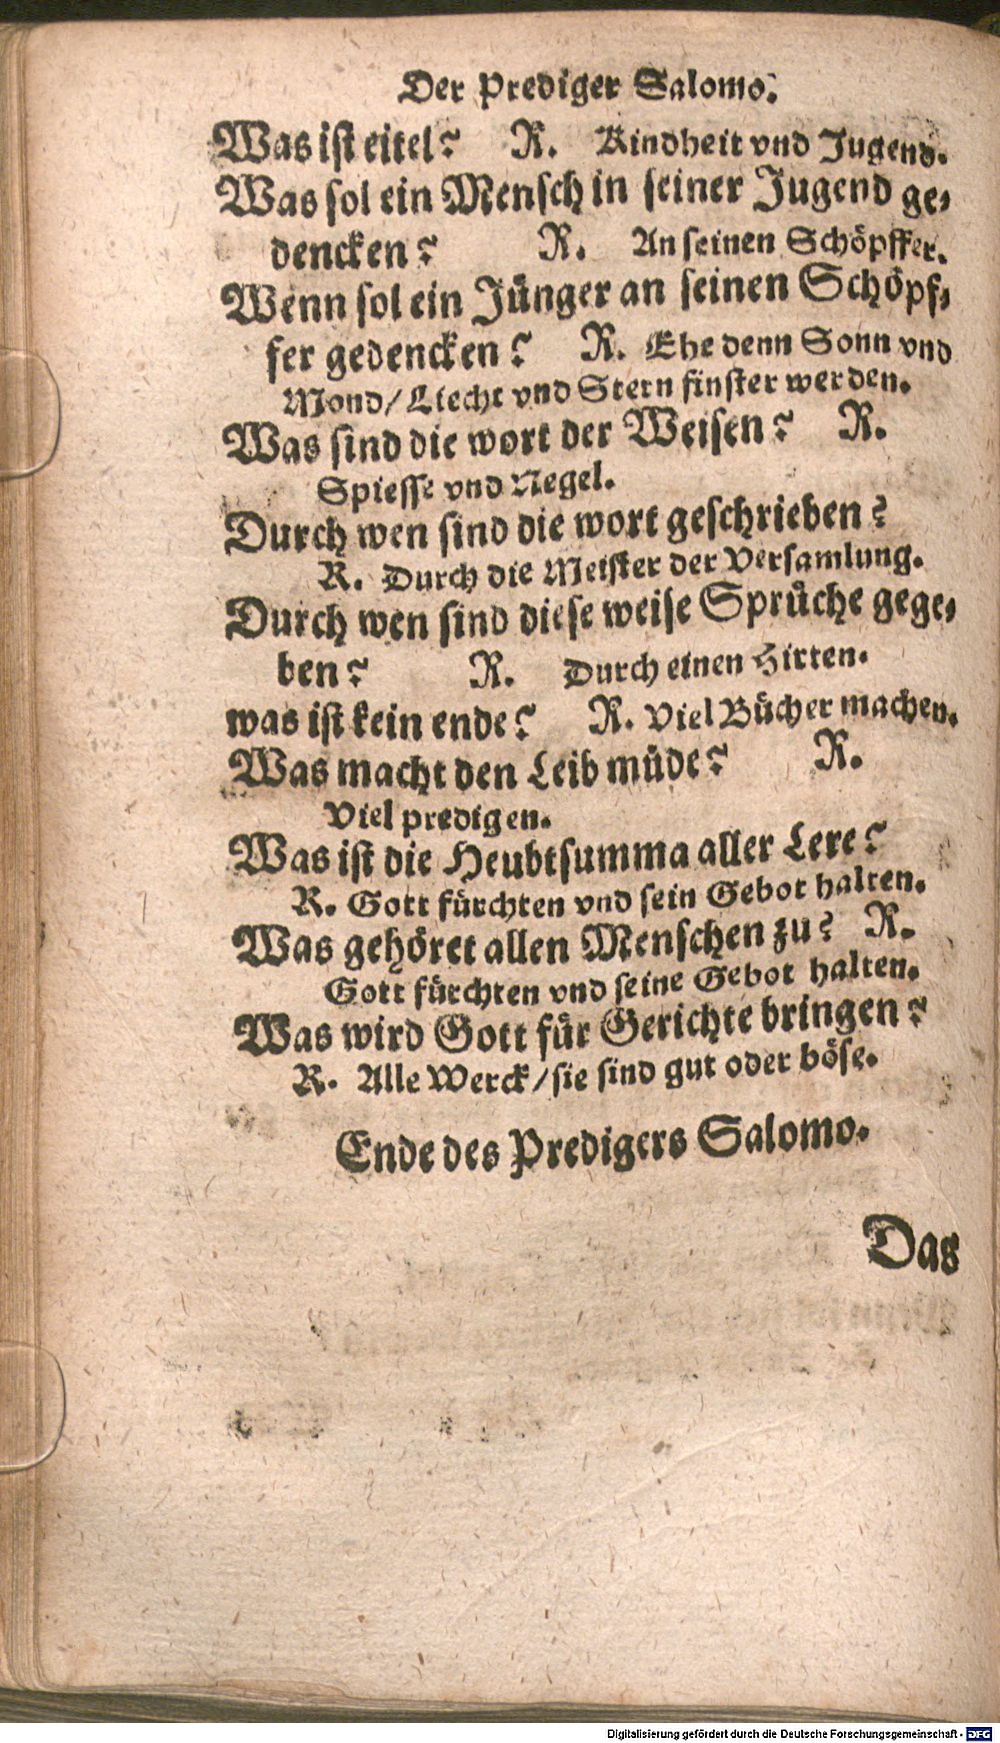 Der Prediger Salomo.
Was ist eitel? R. Kindheit vnd Jugend.
Was sol ein Mensch in seiner Jugend ge-
dencken? R. An seinen Schöpffer.
Wenn sol ein Jünger an seinen Schöpf-
fer gedencken? R. Ehe denn Sonn vnd
Mond/ Liecht vnd Stern finster werden.
Was sind die wort der Weisen? R.
Spiesse vnd Negel.
Durch wen sind die wort geschrieben?
R. Durch die Meister der Versamlung.
Durch wen sind diese weise Sprüche gege-
ben? R. Durch einen Hirten.
was ist kein ende? R. Viel Bücher machen.
Was macht den Leib müde? R.
Viel predigen.
Was ist die Heubtsumma aller Lere?
R. Gott fürchten vnd sein Gebot halten.
Was gehöret allen Menschen zu? R.
Gott fürchten vnd seine Gebot halten.
Was wird Gott für Gerichte bringen?
R. Alle Werck/ sie sind gut oder böse.
Ende des Predigers Salomo.
Das
Digitalisierung gefördert durch die Deutsche Forschungsgemeinschaft - DFG